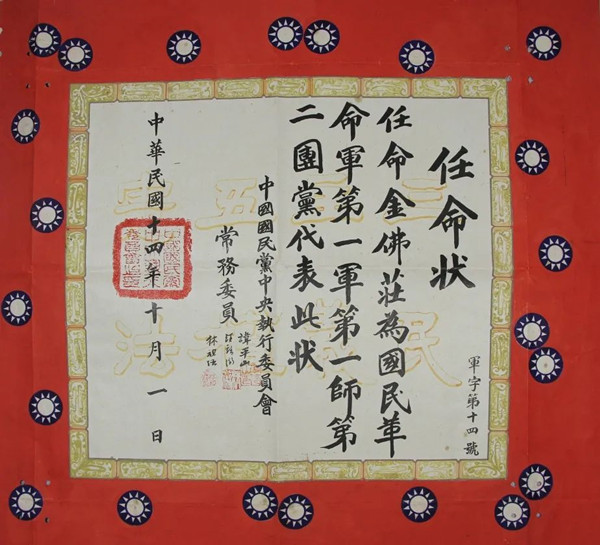 軍字第十四號
任命状
任命金佛莊為國民革
命軍第一軍第一師第
二團黨代表此状
中國國民黨中央執行委員會
常務委員
譚平山
汪精衛
林祖涵
中華民國十四年十月一日